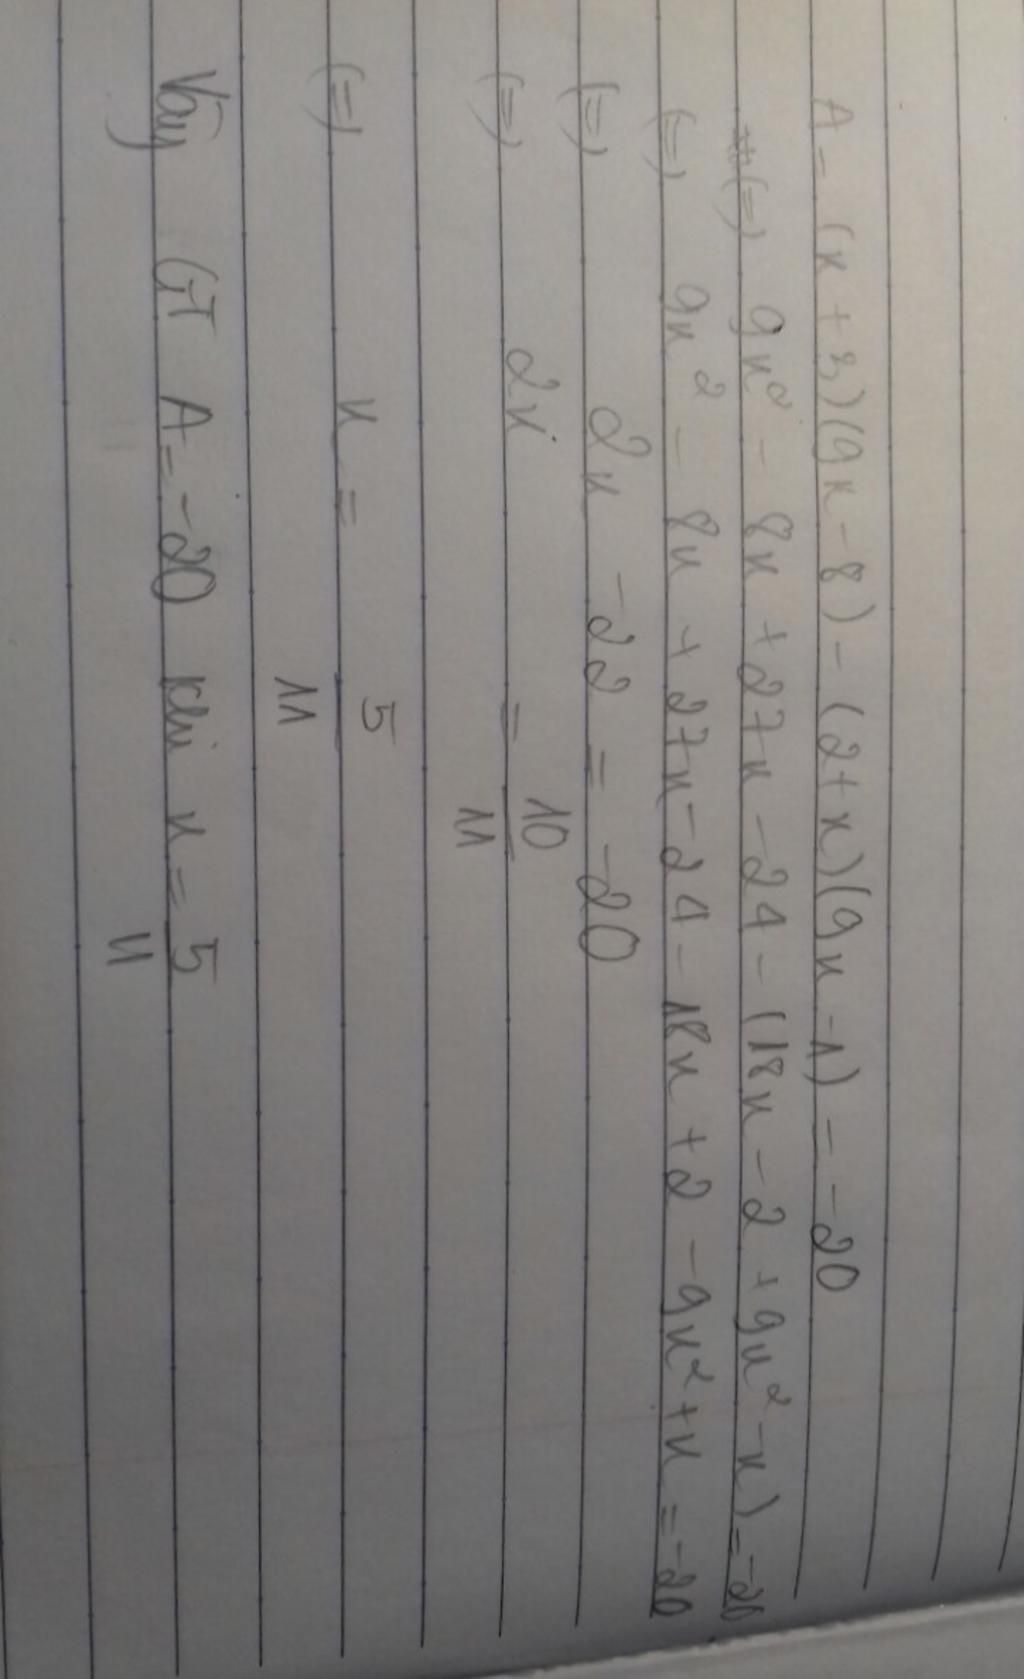 A = (x + 3)(9x - 8) - (2 + x)(9x - 1) = -20
(=) 9x² - 8x + 27x - 24 - (18x - 2 + 9x² - x) = -20
(=) 9x² - 8x + 27x - 24 - 18x + 2 - 9x² + x = -20
(=) 2x - 22 = -20
(=) 2x = 10/11
(=) x = 5/11
Vậy GT A = -20 khi x = 5/11